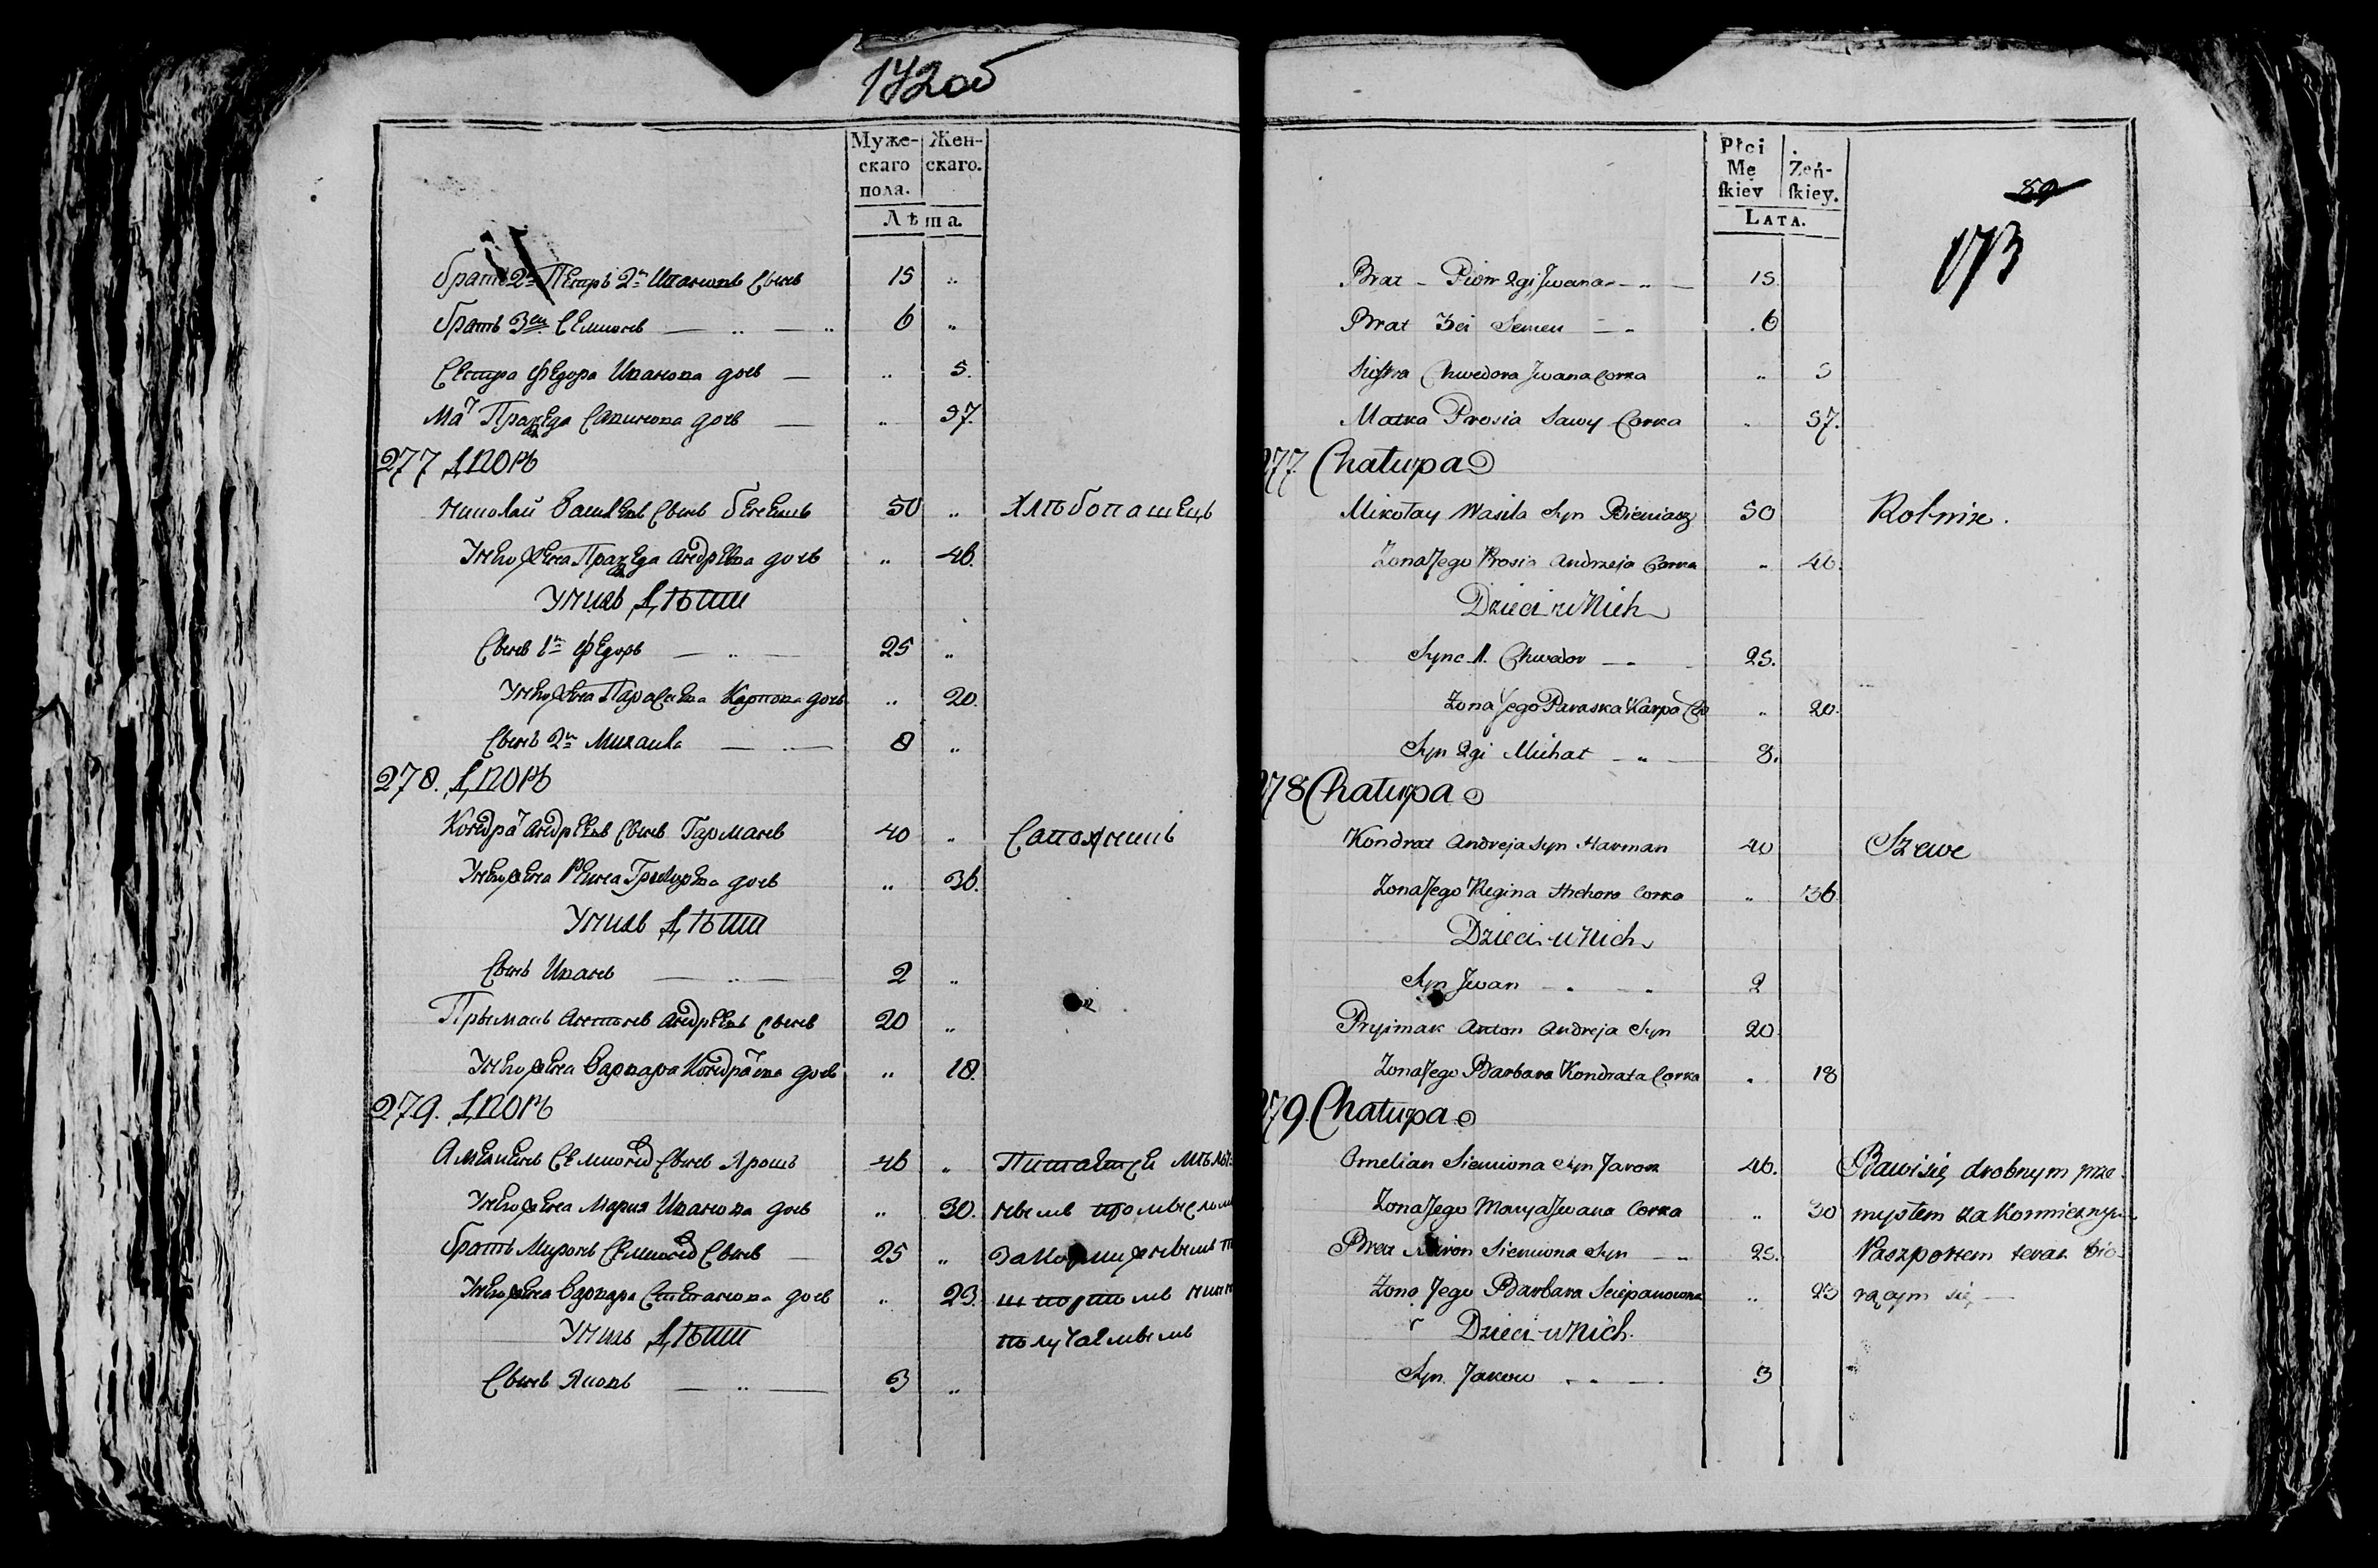 172об
Муже- Жен-
скаго скаго.
пола.
Лѣта.
братъ 2й Петръ 2й Ивановъ сынъ 15 "
братъ 3ей Семионъ — " — " 6 "
Сестра Федора Иванова дочь — " 5.
Мат Праѯеда Савинова дочь — " 37.
277 Дворъ
Николай Васильевъ сынъ Бенешъ 50 " Хлѣбопашецъ
У него жена Праѯеда Андреева дочь " 46.
У нихъ Дѣти
Сынъ 1й Федоръ — " — 25 "
У него жена Парасьева Карпова дочь " 20.
Сынъ 2й Михаилъ — " — 8 "
278. Дворъ
Кондрат Андреевъ сынъ Гарманъ 40 " Сапожникъ
У него жена Регина Григорьева дочь " 36.
У нихъ Дѣти
Сынъ Иванъ — " — 2 "
Прымакъ Антонъ Андреевъ сынъ 20 "
У него жена Варвара Кондратова дочь " 18.
279. Дворъ
Амельянъ Семионов сынъ Ярошъ 46 " Питается мѣлоч
У него жена Мария Иванова дочь " 30. нымъ промысломъ
братъ Миронъ Семионов сынъ — 25 "
У него жена Варвара Степанова дочь " 23.
У нихъ Дѣти получаемымъ
Сынъ Яковъ — " — 3 "
Płci
Mę Żeń-
ſkiey ſkiey.
LATA.
89
173
Brat - Piotr 2gi Jwana - " — 15.
Brat 3ci Semen — " 6
Siostra Chwedora Jwana Corka " 5
Matka Prosia Sawy Corka " 37.
277. Chałupa
Mikołay Wasila Syn Bieniasz 50 Rolnik.
Żona Jego Prosia Andrzeja Corka " 46.
Dzieci u Nich
Syn 1. Chwedor — " 25.
Żona Jego Paraska Karpa Co " 20.
Syn 2gi Michał — " — 8.
278 Chałupa
Kondrat Andreja Syn Harman 40 Szewc
Żona Jego Regina Hrehora Corka " 36
Dzieci u Nich
Syn Jwan - " " 2
Pryimak Anton Andreja Syn 20
Żona Jego Barbara Kondrata Corka " 18
279. Chałupa
Omelian Siemiona Syn Jarosz 46. Bawi się drobnym prze-
Żona Jego Marya Jwana Corka " 30 mysłem zakormieznym
Brat Miron Siemiona Syn — " 25. Paszportem teraz bio-
Żona Jego Barbara Sciepanowna " 23 rącym się —
Dzieci u Nich.
Syn Jakow - " — 3